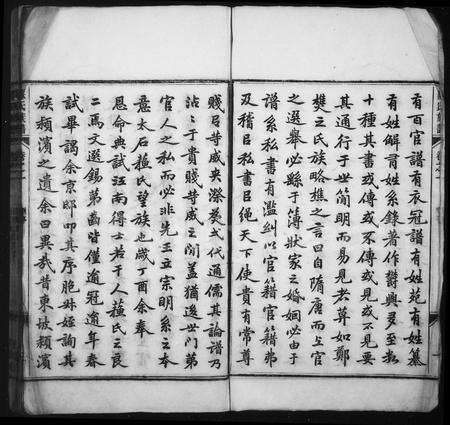 有百官譜有衣冠譜有姓苑有姓纂
有姓解胥姓系錄著作欝興多至數
十種其書或傳或不傳或見或不見要
其通行于世簡明而易見者莫如鄭
樵之氏族略樵之言曰自隋唐而上官
之選舉必繇于簿狀家之婚姻必由于
譜系私書有濫糾以官籍官籍弗
及稽㠯私書㠯繩天下使貴有常尊
賤㠯等威夹漈英弍代通儒其論譜乃
沾沾于貴賤等威之間盖猶逸世門第
官人之私而必非先王立宗明系之本
意太石蘓氏望族也歲丁酉余奉
恩命典試江南得士若干人蘓氏之良
二焉文選錫苐嵓皆僅逾冠逾年春
試畢謁余京邸叩其序脆妹姪詢其
族頴濱之遺余曰異哉昔東坡頴濱